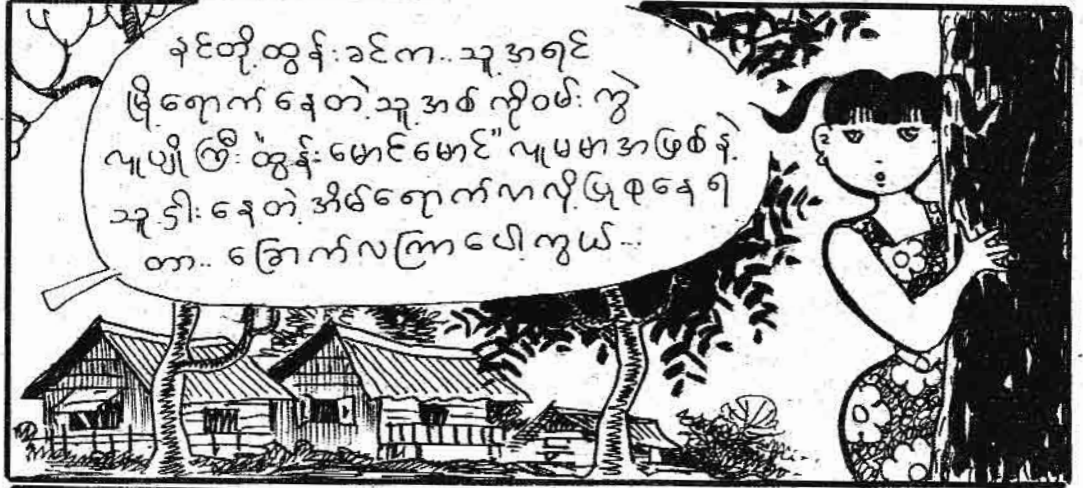 နင်တို့ထွန်းခင်က.. သူ့အရင်
မြို့ရောက်နေတဲ့သူ့အစ်ကိုဝမ်းကွဲ
လူပျိုကြီး "ထွန်းမောင်မောင်" လူမမာအဖြစ်နဲ့
သူငှါးနေတဲ့အိမ်ရောက်လာလို့ပြုစုနေရ
တာ.. ခြောက်လကြာပေါ့ကွယ်...